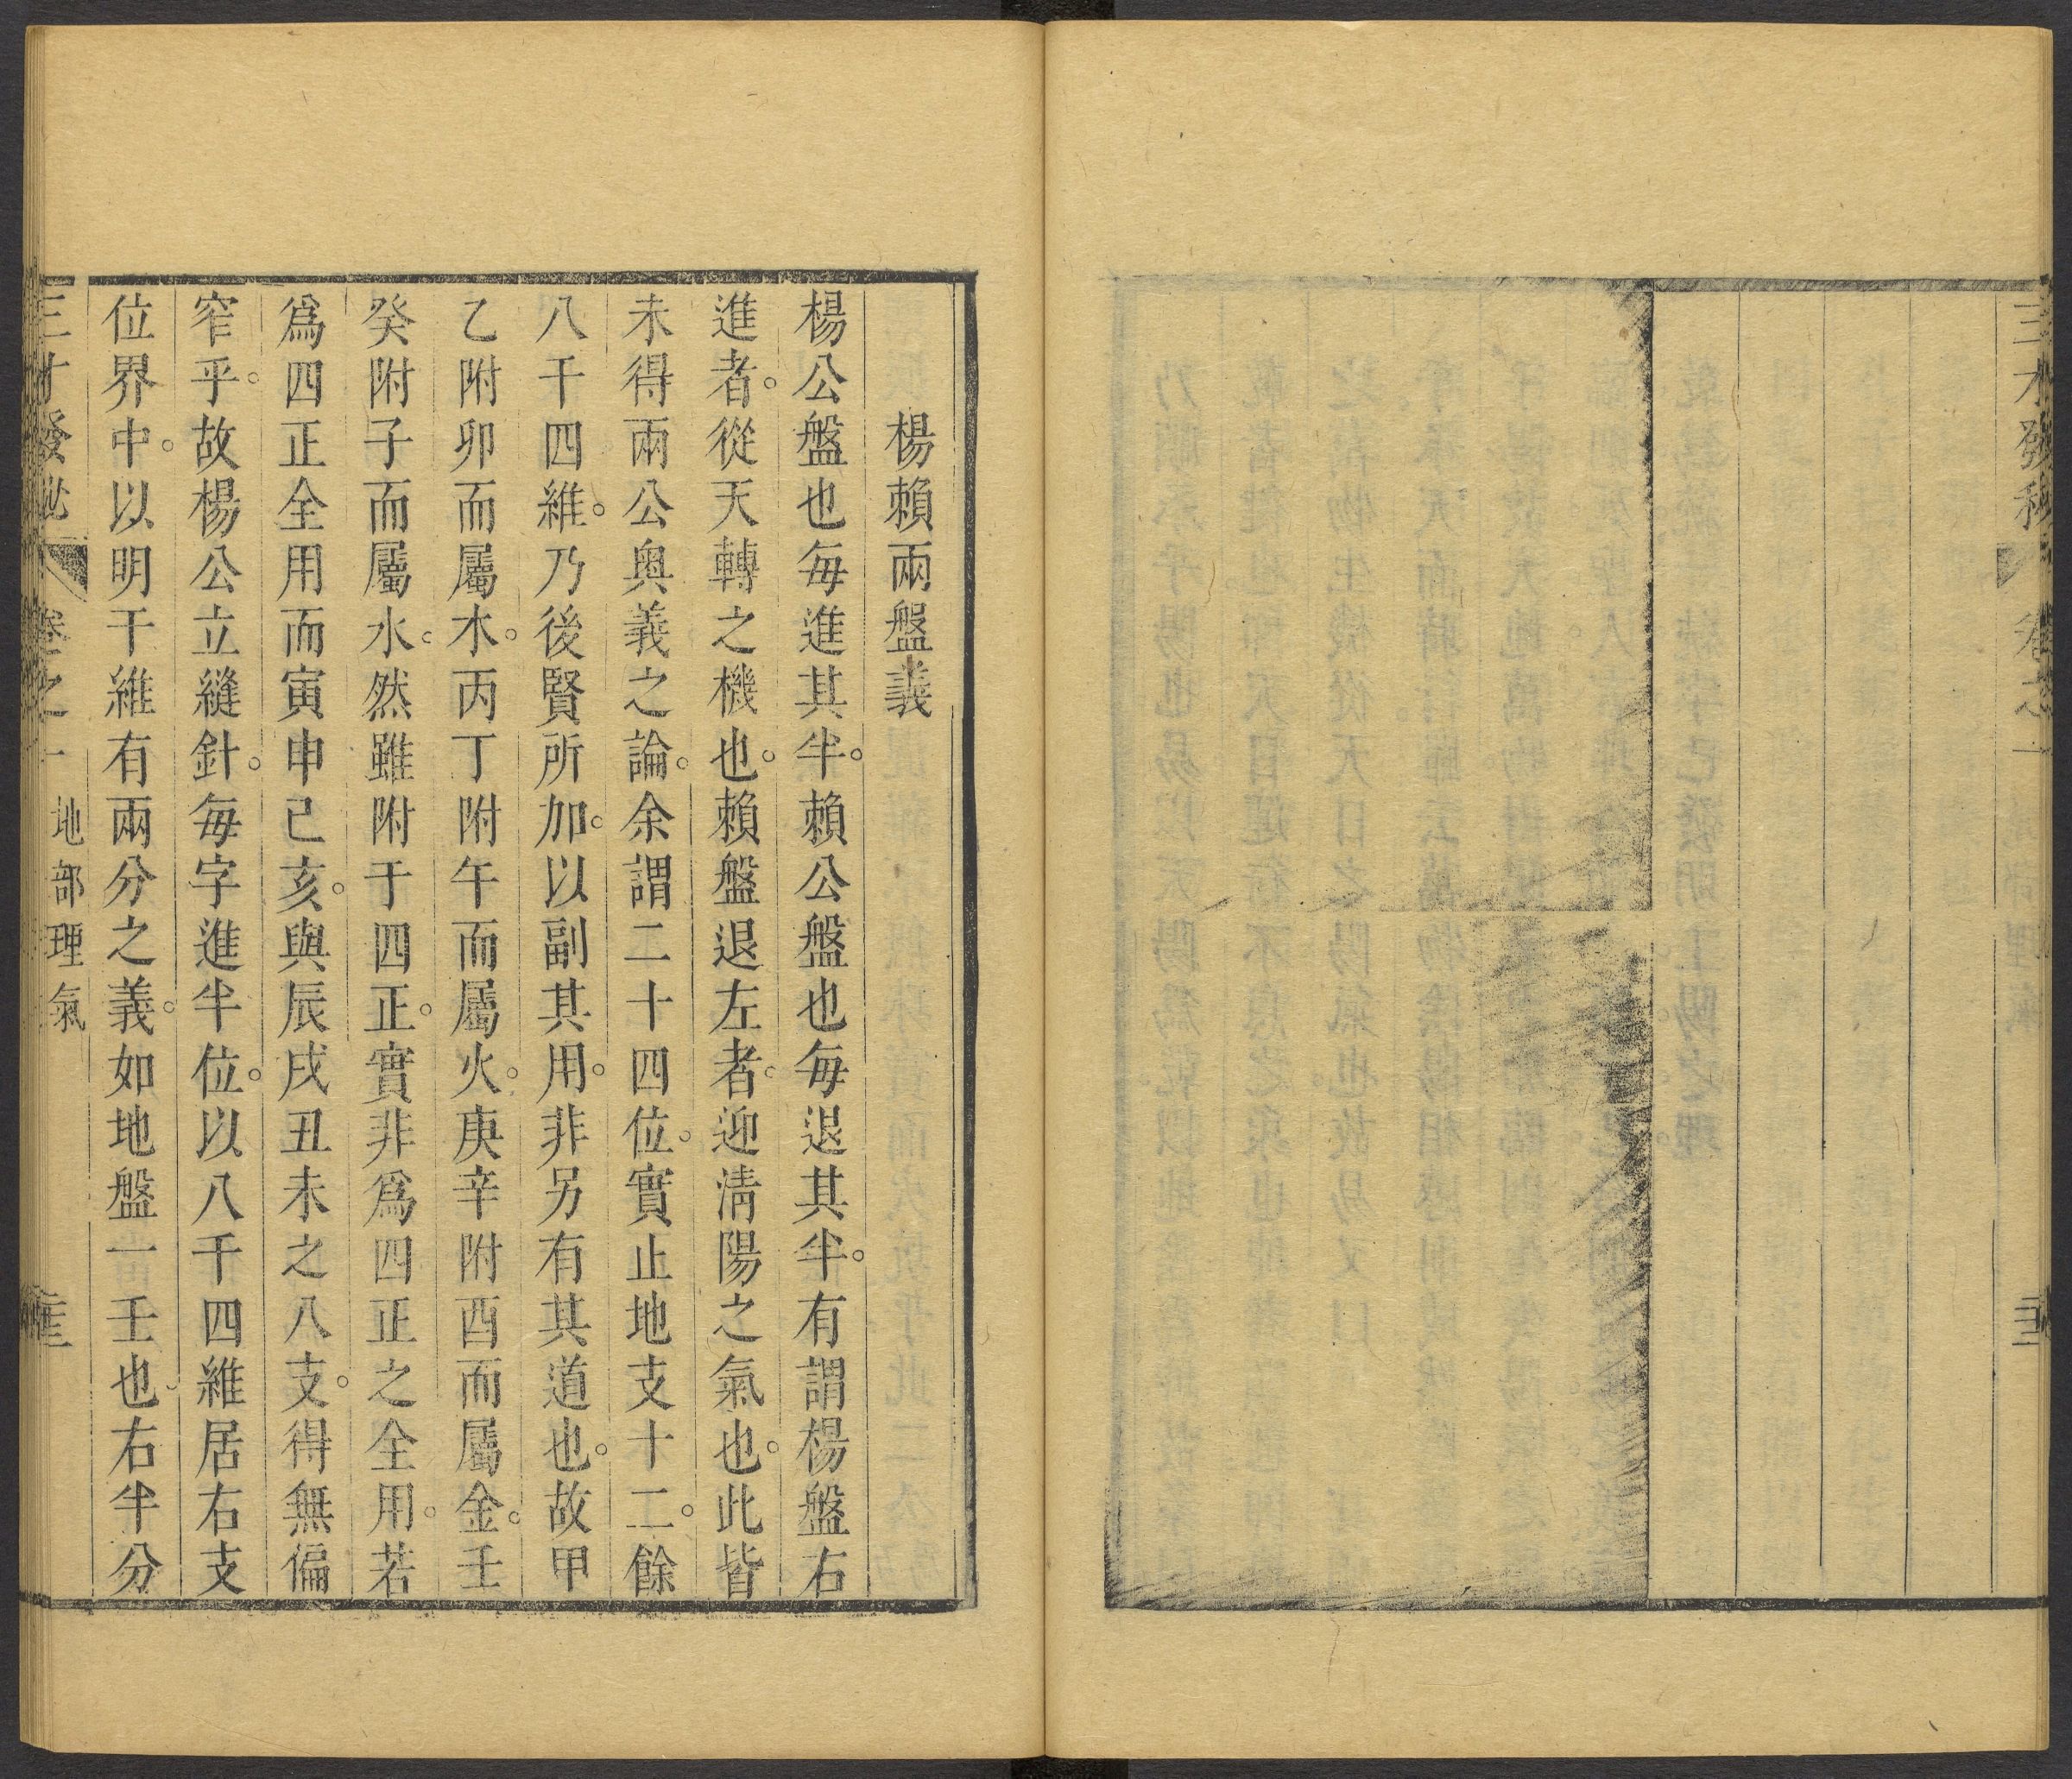 三才發秘
卷之一
楊賴兩盤義
楊公盤也每進其半。賴公盤也每退其半。有謂楊盤右
進者。從天轉之機也。賴盤退左者。迎淸陽之氣也。此皆
未得兩公奧義之論。余謂二十四位。實止地支十二。餘
八干四維。乃後賢所加。以副其用。非另有其道也。故甲
乙附卯而屬木。丙丁附午而屬火。庚辛附酉而屬金。壬
癸附子而屬水。然雖附于四正。實非爲四正之全用。若
爲四正全用而寅申巳亥。與辰戌丑未之八支。得無偏
窄乎。故楊公立縫針。每字進半位。以八干四維居右支
位界中。以明干維有兩分之義。如地盤一壬也、右半分
三才發秘
卷之一
地部理氣